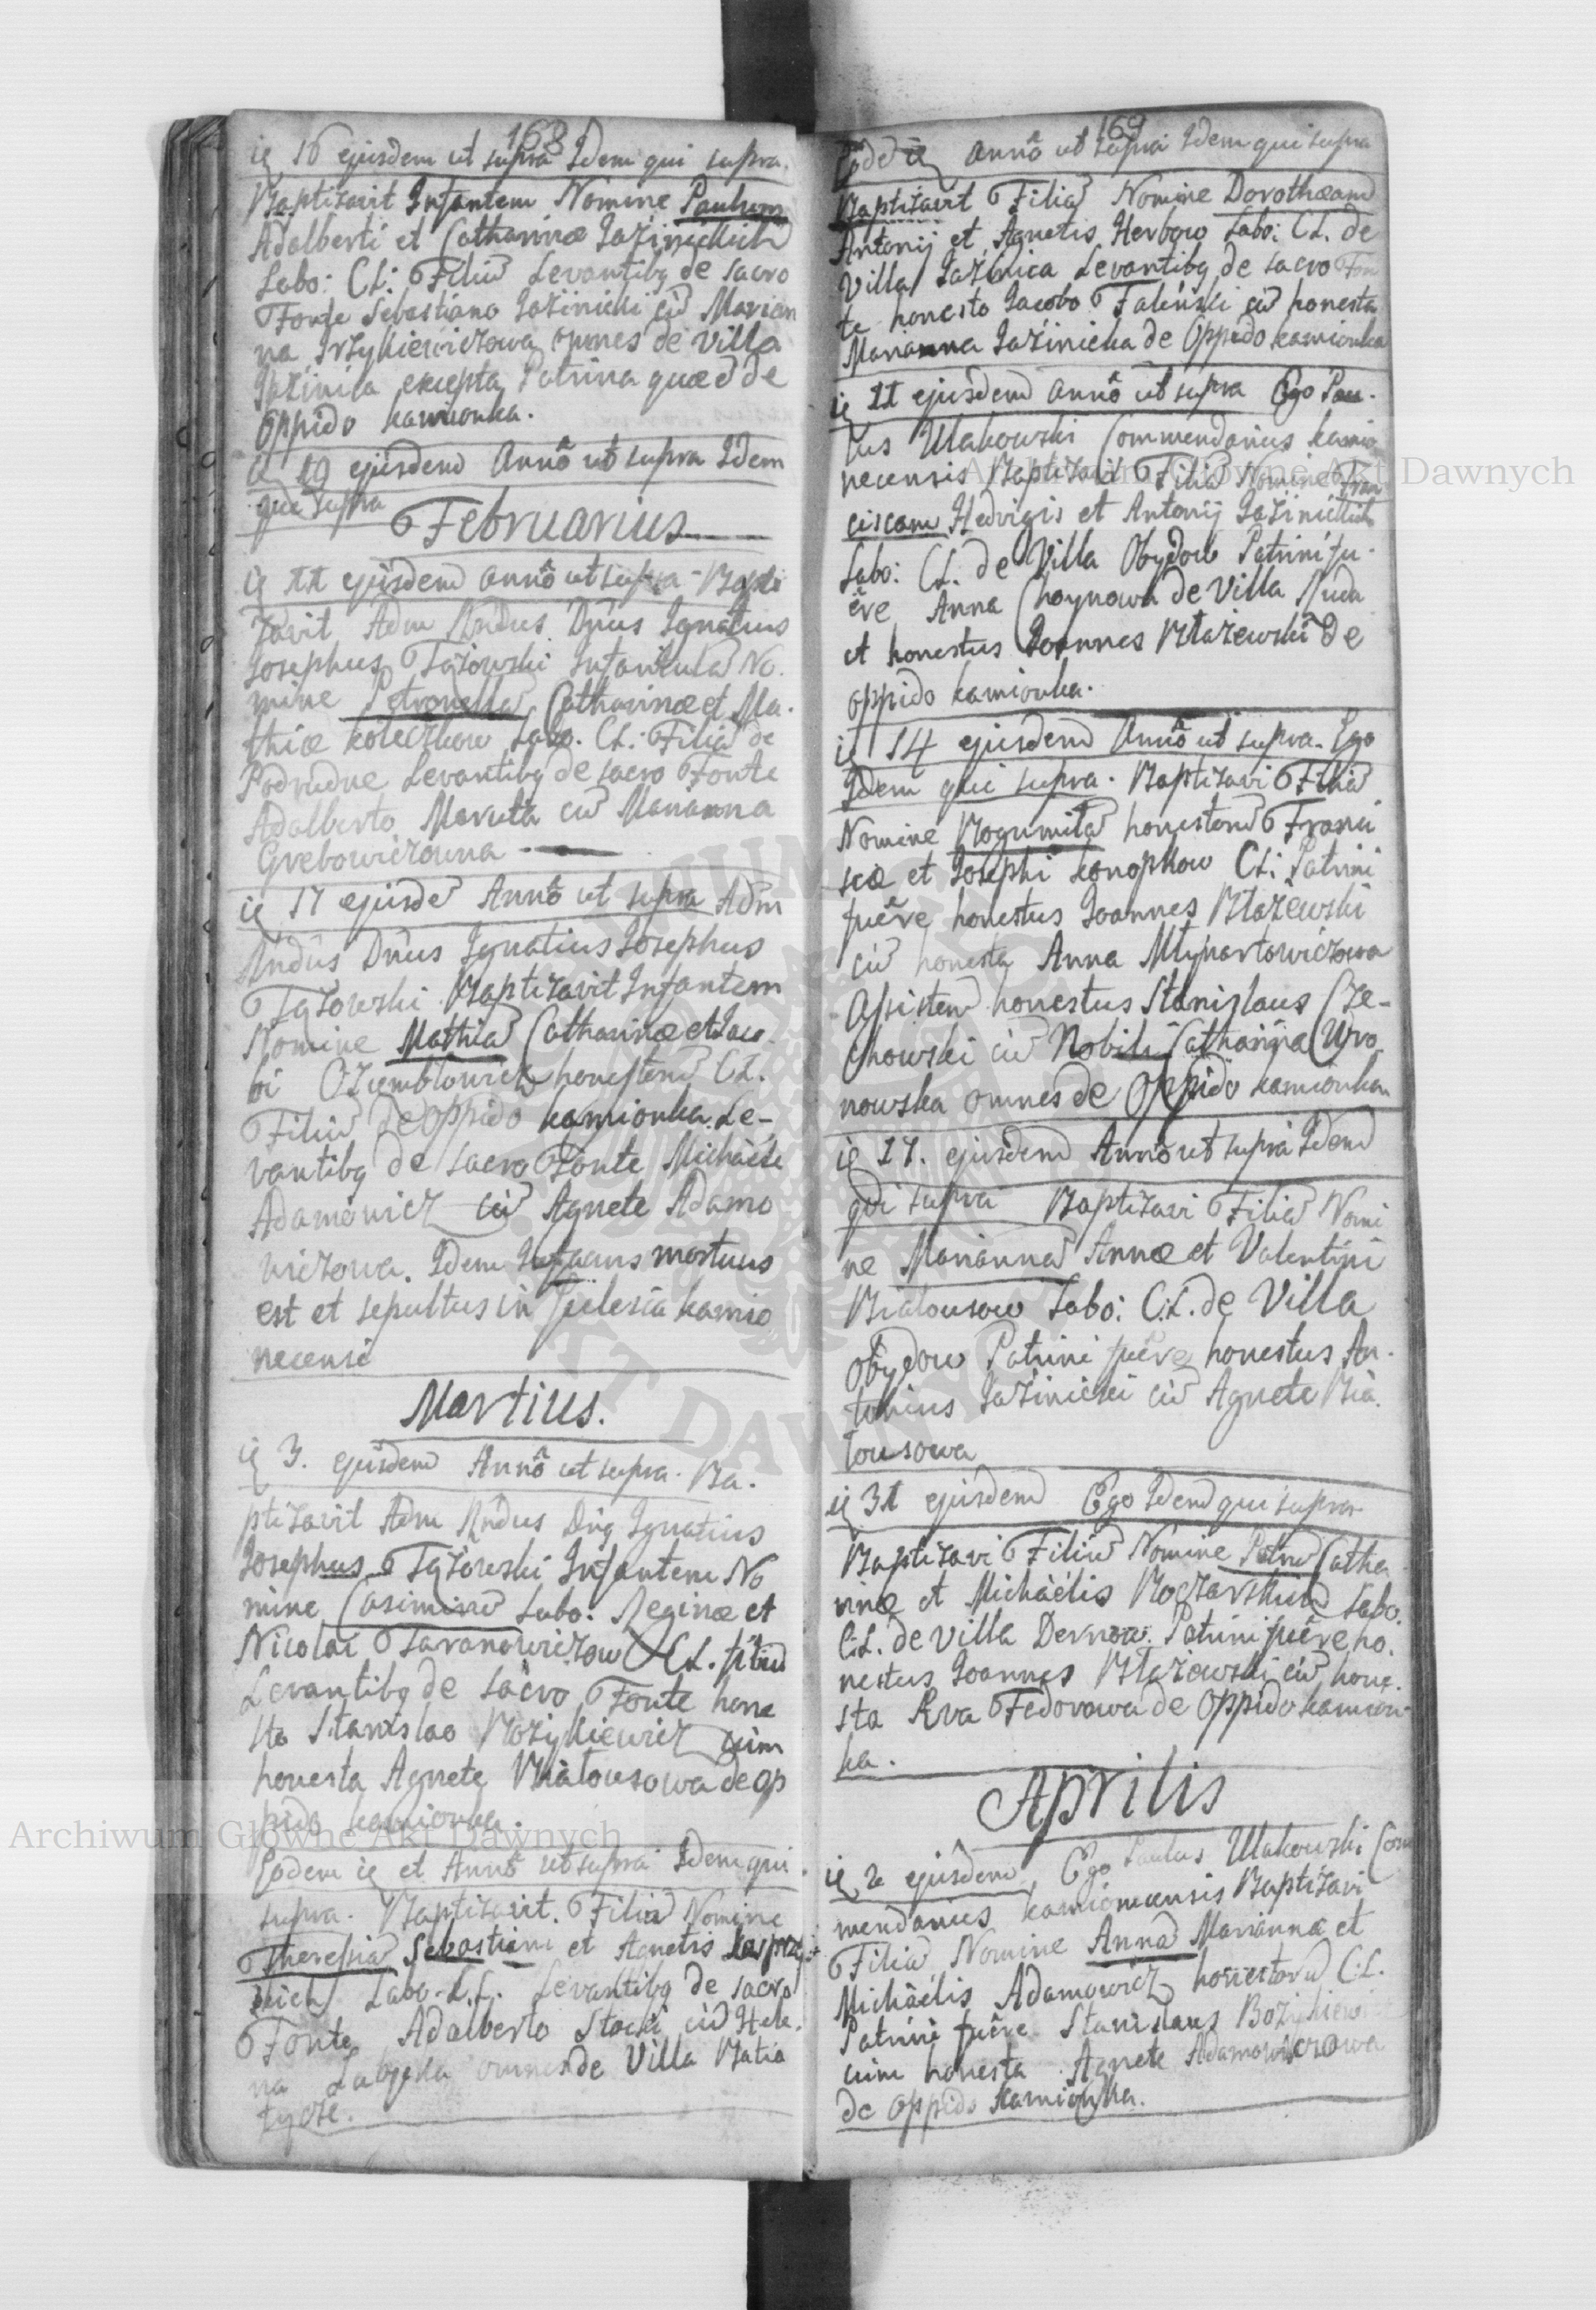 168
ie 16 ejusdem ut supra Idem qui supra.
Baptizavit Infantem Nomine Paulum
Adalberti et Catharinæ Jaźinickich
Labo: CL: Filiu Levantibq de sacro
Fonte Sebastiano Jaźinicki cu Marian
na Irzykiewiczowa omnes de villa
Jaźinica excepta Patrina quæ e de
Oppido kamionka.
ie 19 ejusdem Anno ut supra Idem
qui supra
Februarius
ejusdem anno ut supra Bapti
zavit Adm Rndus Dnus Ignatius
Josephus Infantula No.
mine Petronella Catharinæ et Ma.
thiæ koleczkow Labo. CL: Filia de
Podrudne Levantibq de sacro Fonte
Adalberto Maruta cu Marianna
Grebowiczowna
ie 17 ejusde Anno ut supra Adm
Rndus Dnus Ignatius Josephus
Baptizavit Infantem
Nomine Mathia Catharinæ et Jaco
bi honestoru CL.
Filiu de oppido kamionka Le-
vantibq de sacro Fonte Michàéle
Adamowicz cu Agnete Adamo
wiczowa. Idem Infans mortuus
est et sepultus in kamio
necensi
Martius.
ie 3. ejusdem Anno ut supra. Ba.
ptizavit Adm Rndus Dnq Ignatius
Josephus Infantem No
mine Casimiru Labo: Reginæ et
Nicolai CL. filiu
Levantibq de sacro Fonte hone
sto Stanislao Bozykiewicz cum
honesta Agnete Białousowa de op
pido kamionka.
Eodem ie et Anno ut supra Idem qui
supra. Baptizavit. Filia Nomine
Theresia Sebastiani et Agnetis
Labo. L.L. Levantibq de sacro
Fonte Adalberto Stocki cu Hele.
na omnes de Villa Batia
tycze.
169
Eode ie anno ut supra Idem qui supra
Baptizavit Filia Nomine Dorotheam
Antonij et Agnetis Herbow Labo: CL. de
Villa Jaźinica Levantibq de sacro Fon
te honesto Jacobo Faleński cu honesta
Marianna Jaźinicka de Oppido kamionka
ie 11 ejusdem anno ut supra Ego Pau.
lus Ulakowski Commendarius kamio
necensis Baptizavi Filia Nomine Fran
ciscam Hedvigis et Antonij Jaźinickich
Labo: CL. de Villa Obydow Patrini fu.
ere Anna Choynowa de Villa Ruda
et honestus Joannes Błażewski de
oppido kamionka.
ie 14 ejusdem Anno ut supra. Ego
Idem qui supra. Baptizavi Filia
Nomine Bogumila honestoru Franci
scæ et Josephi konopkow CL: Patrini
fuere honestus Joannes Błażewski
cu honesta Anna Młynartowiczowa
Assisten honestus Stanislaus Cze-
chowski cu Nobili Catharina
nowska omnes de Oppido kamionka
ie 17. ejusdem Anno ut supra Idem
qui supra Baptizavi Filia Nomi
ne Marianna Annæ et Valentini
Białousow Labo: C:L. de Villa
Obydow Patrini fuere honestus An.
tonius Jaźinicki cu Agnete Bia.
lousowa
ie 31 ejusdem Ego Idem qui supra
Baptizavi Filiu Nomine Petru Catha
rinæ et Michàélis Boczarskich Labo.
C:L. de Villa Dernow. Patrini fuere ho.
nestus Joannes Błażewski cu hone.
sta Eva Fedorowa de Oppido kamion
ka.
Aprilis
ie 2 ejusdem, Ego Paulus Ulakowski Com
mendarius kamionecensis Baptizavi
Filia Nomine Anna Marianna et
Michàélis Adamowicz honestoru C:L.
Patrini fuere Stanislaus
cum honesta Agnete Adamowiczowa
de Oppido kamionka.
Archiwum Główne Akt Dawnych
Archiwum Główne Akt Dawnych